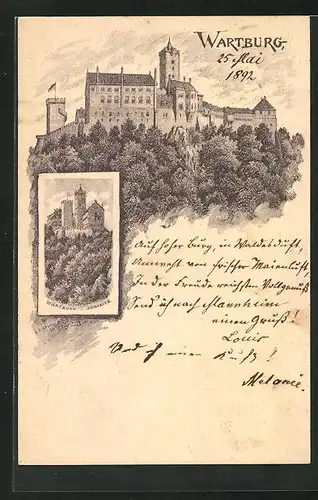 WARTBURG,
25 Mai
1892
WARTBURG
Auf hoher Burg, in Waldesduft,
Umweht von frischer Maienluft
In der Freude reichstem Vollgenuß
Send ich nach Mannheim
einen Gruß!
Louis
Und ich einen Kuß!
Melanie.